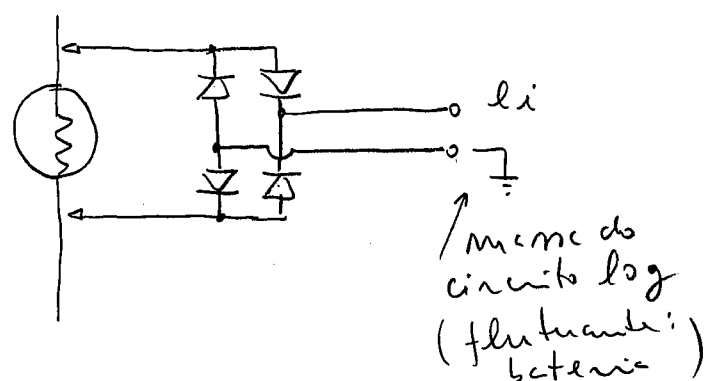 ei
massa do
circuito log
(flutuante:
bateria)